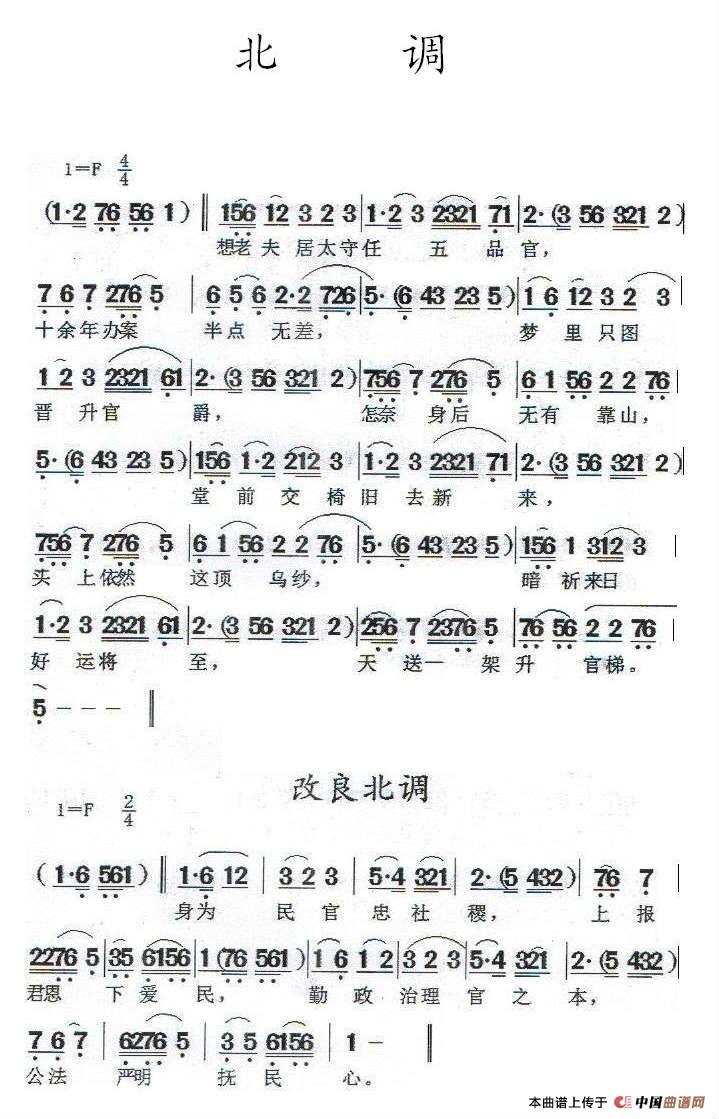 北 调
1=F 4/4
(1·2 76 56 1) ‖ 156 12 3 2 3 | 1·2 3 2321 71 | 2·(3 56 321 2) |
想老夫 居太守任 五 品 官,
7 6 7 276 5 | 6 5 6 2·2 726 | 5·(6 43 23 5) | 1 6 12 3 2 3 |
十余年办案 半点 无差, 梦 里 只图
1 2 3 2321 61 | 2·(3 56 321 2) | 756 7 276 5 | 6 1 56 2 2 76 |
晋 升 官 爵, 怎奈 身 后 无有 靠山,
5·(6 43 23 5) | 156 1·2 212 3 | 1·2 3 2321 71 | 2·(3 56 321 2) |
堂 前 交 椅 旧 去 新 来,
756 7 276 5 | 6 1 56 2 2 76 | 5·(6 43 23 5) | 156 1 312 3 |
头 上 依然 这 顶 乌 纱, 暗 祈 来日
1·2 3 2321 61 | 2·(3 56 321 2) | 256 7 2376 5 | 76 56 2 2 76 |
好 运 将 至, 天 送 一 架 升 官 梯。
5 - - - ‖
改良北调
1=F 2/4
(1·6 561) ‖ 1·6 12 | 3 2 3 | 5·4 321 | 2·(5 432) | 76 7 |
身为 民 官 忠 社 稷, 上 报
2276 5 | 35 6156 | 1 (76 561) | 1 6 12 | 3 2 3 | 5·4 321 | 2·(5 432) |
君恩 下 爱 民, 勤 政 治理 官 之 本,
7 6 7 | 6276 5 | 3 5 6156 | 1 - ‖
公法 严明 抚 民 心。
本曲谱上传于 中国曲谱网